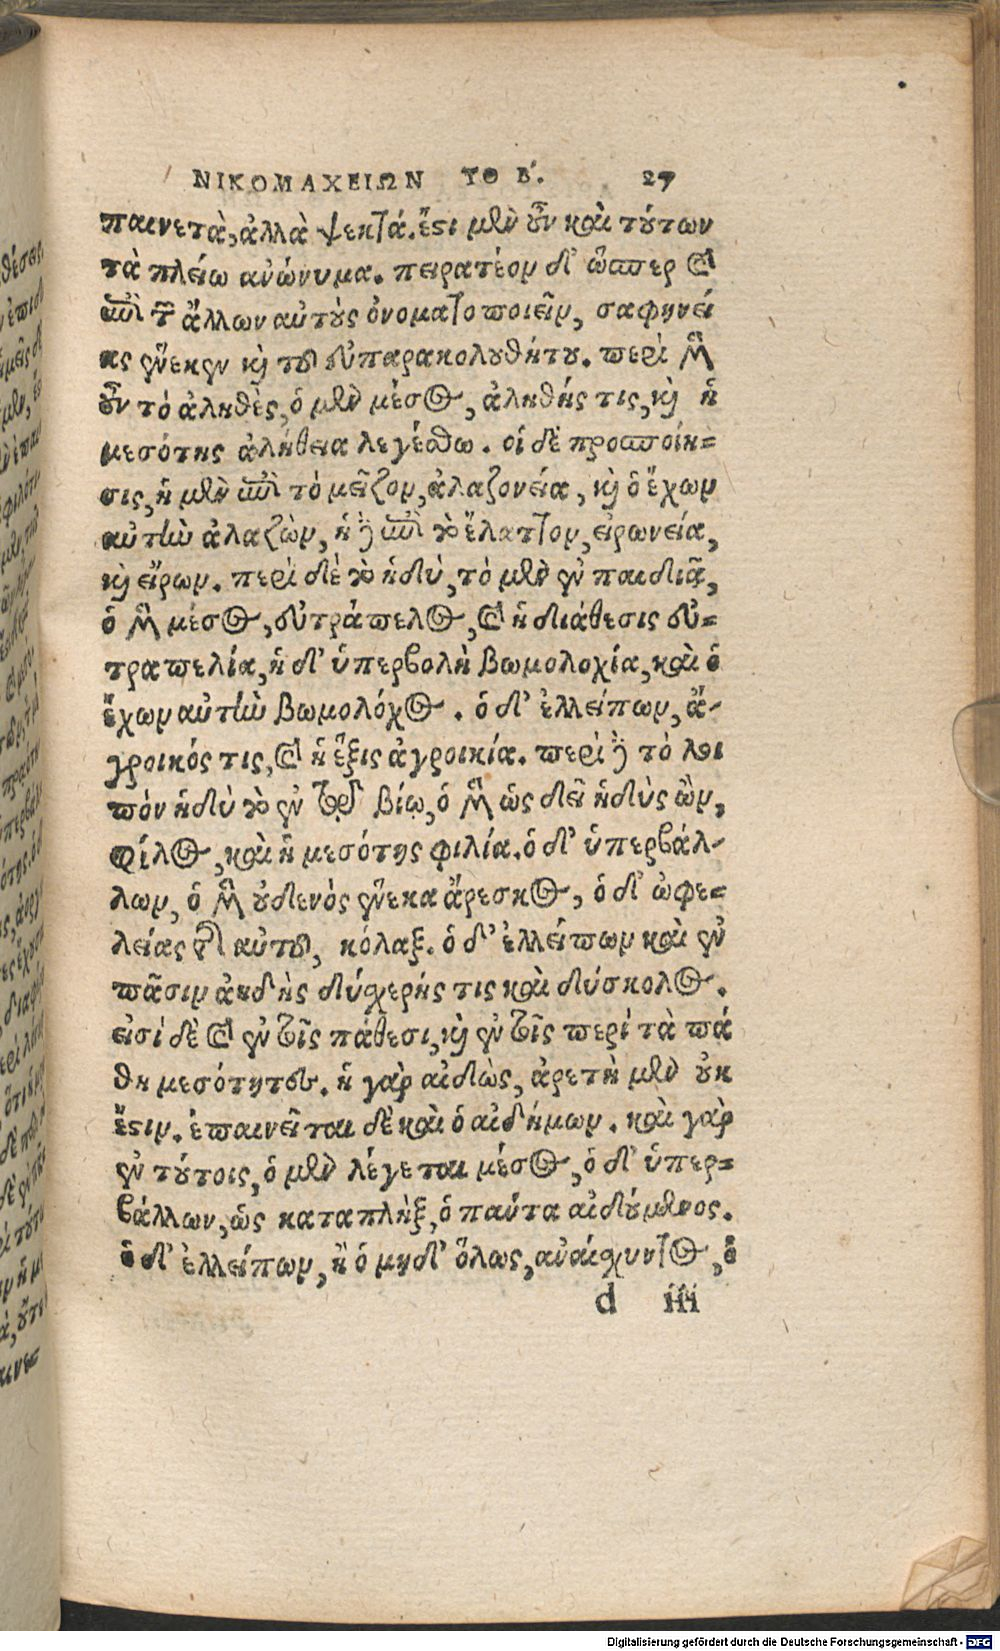 ΝΙΚΟΜΑΧΕΙΩΝ ΤΟ Β΄. 27
παινετὰ, ἀλλὰ ψεκτά. ἔστι μὲν οὖν καὶ τούτων
τὰ πλείω ἀνώνυμα. πειρατέον δ' ὥσπερ καὶ
ἐπὶ τῶν ἄλλων αὐτοὺς ὀνοματοποιεῖν, σαφηνεί
ας ἕνεκεν καὶ τοῦ εὐπαρακολουθήτου. περὶ μὲν
οὖν τὸ ἀληθὲς, ὁ μὲν μέσος, ἀληθής τις, καὶ ἡ
μεσότης ἀλήθεια λεγέσθω. οἱ δὲ προσποίη=
σις, ἡ μὲν ἐπὶ τὸ μεῖζον, ἀλαζονεία, καὶ ὁ ἔχων
αὐτὴν ἀλαζὼν, ἡ δὲ ἐπὶ τὸ ἔλαττον, εἰρωνεία,
καὶ εἴρων. περὶ δὲ τὸ ἡδὺ, τὸ μὲν ἐν παιδιᾷ,
ὁ μὲν μέσος, εὐτράπελος, καὶ ἡ διάθεσις εὐ=
τραπελία, ἡ δ' ὑπερβολὴ βωμολοχία, καὶ ὁ
ἔχων αὐτὴν βωμολόχος. ὁ δ' ἐλλείπων, ἄ-
γροικός τις, καὶ ἡ ἕξις ἀγροικία. περὶ δὲ τὸ λοι
πὸν ἡδὺ τὸ ἐν τῷ βίῳ, ὁ μὲν ὡς δεῖ ἡδὺς ὢν,
φίλος, καὶ ἡ μεσότης φιλία. ὁ δ' ὑπερβάλ-
λων, ὁ μὲν οὐδενὸς ἕνεκα ἄρεσκος, ὁ δ' ὠφε=
λείας τῆς αὐτοῦ, κόλαξ. ὁ δ' ἐλλείπων καὶ ἐν
πᾶσιν ἀηδὴς δύσερής τις καὶ δύσκολος.
εἰσὶ δὲ καὶ ἐν τοῖς πάθεσι, καὶ ἐν τοῖς περὶ τὰ πά
θη μεσότητες. ἡ γὰρ αἰδὼς, ἀρετὴ μὲν οὐκ
ἔστιν. ἐπαινεῖται δὲ καὶ ὁ αἰδήμων. καὶ γὰρ
ἐν τούτοις, ὁ μὲν λέγεται μέσος, ὁ δ' ὑπερ=
βάλλων, ὡς καταπλὴξ, ὁ πάντα αἰδούμενος.
ὁ δ' ἐλλείπων, ἢ ὁ μηδ' ὅλως, ἀναίσχυντος, ὁ
d iii
Digitalisierung gefördert durch die Deutsche Forschungsgemeinschaft - DFG